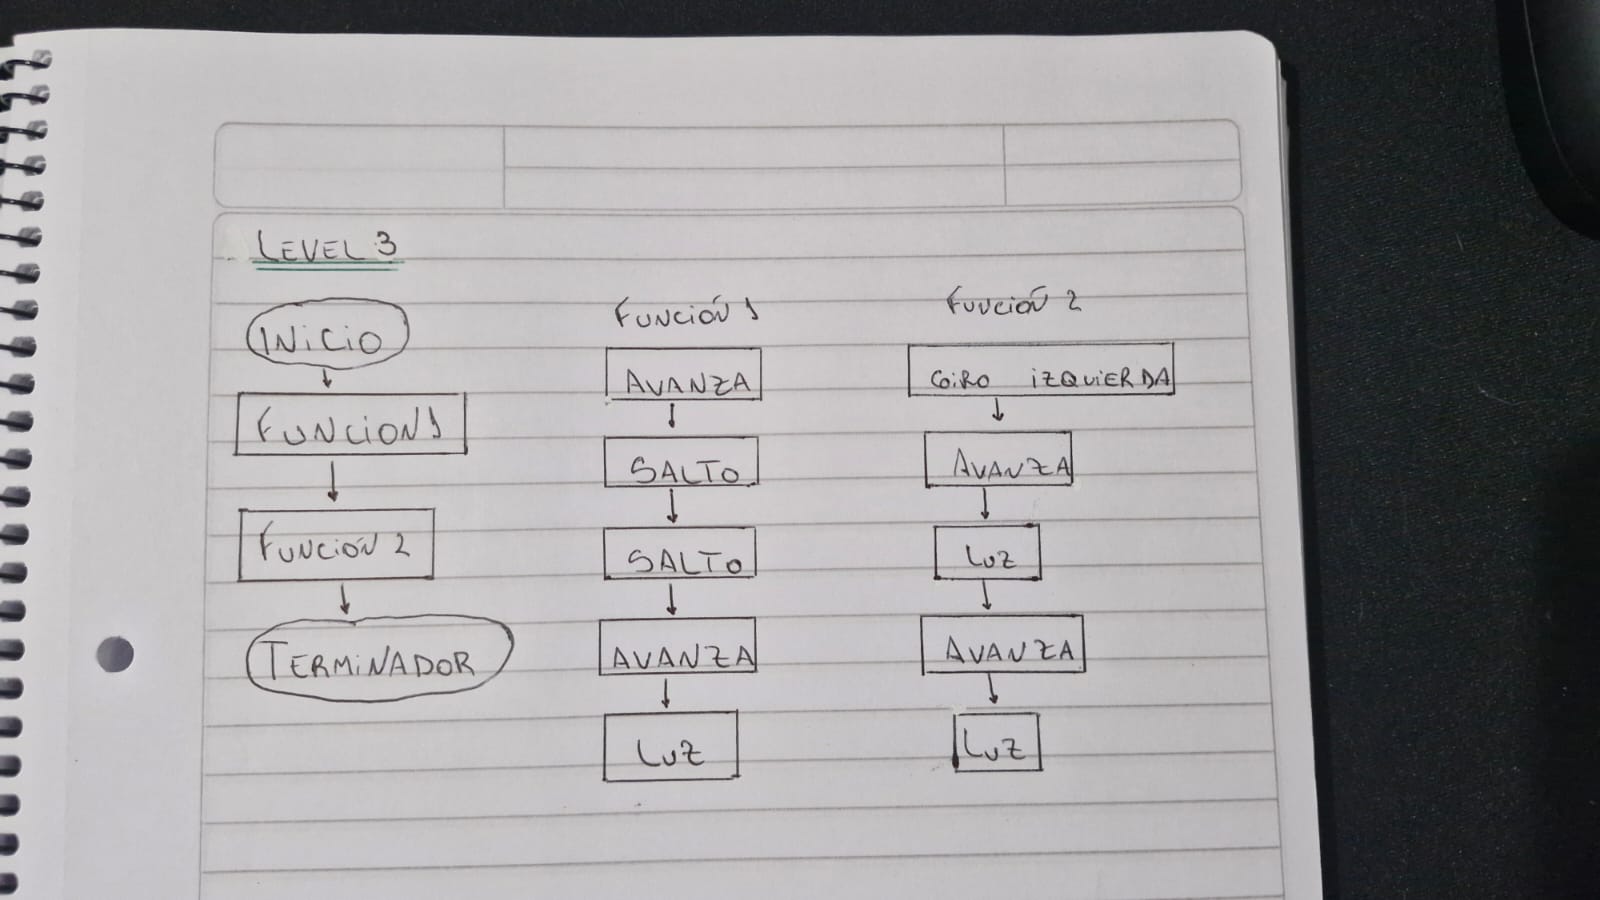 LEVEL 3
INICIO
FUNCION 1
FUNCIÓN 2
TERMINADOR
FUNCIÓN 1
AVANZA
SALTO
SALTO
AVANZA
LUZ
FUNCIÓN 2
GIRO IZQUIERDA
AVANZA
LUZ
AVANZA
LUZ